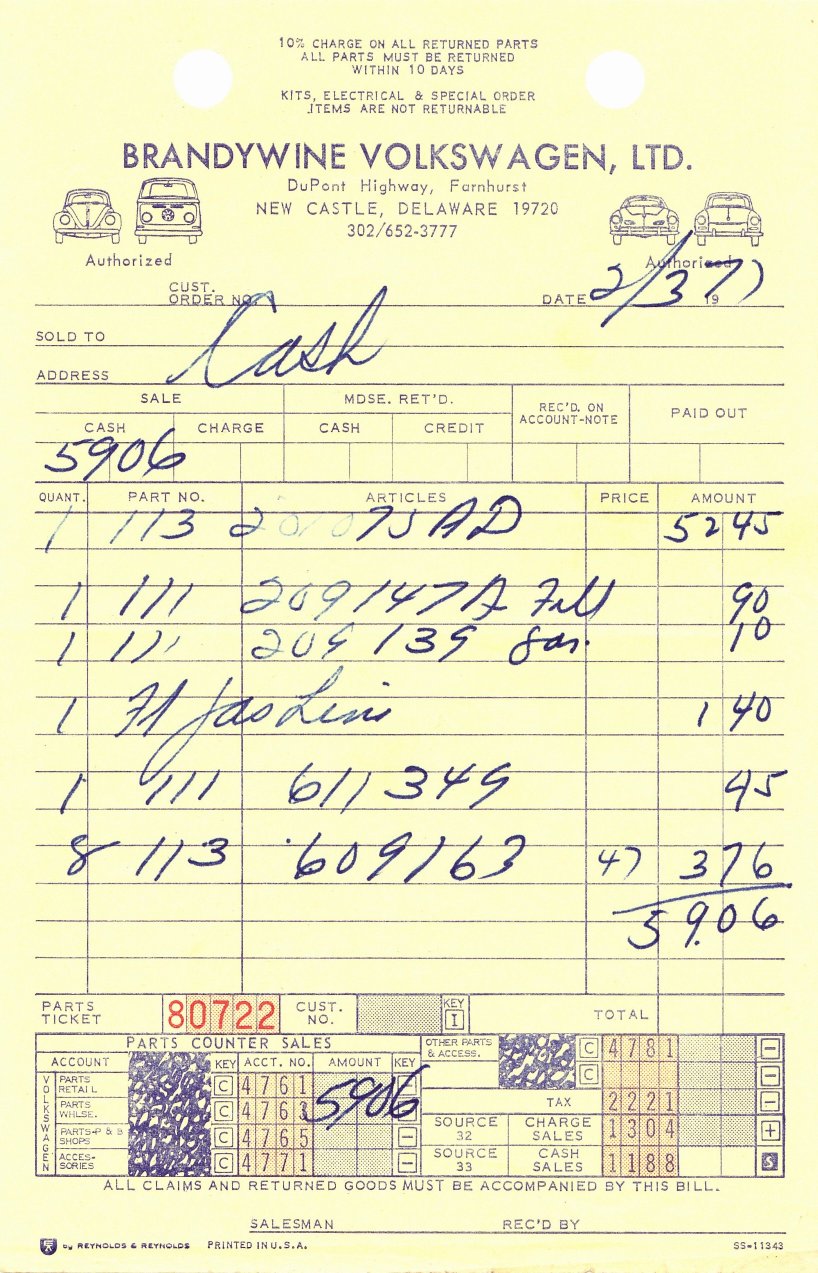 10% CHARGE ON ALL RETURNED PARTS
ALL PARTS MUST BE RETURNED
WITHIN 10 DAYS
KITS, ELECTRICAL & SPECIAL ORDER
ITEMS ARE NOT RETURNABLE
BRANDYWINE VOLKSWAGEN, LTD.
DuPont Highway, Farnhurst
NEW CASTLE, DELAWARE 19720
302/652-3777
Authorized Authorized
CUST. ORDER NO. DATE 2/3 1977
SOLD TO Cash
ADDRESS
SALE MDSE. RET'D. REC'D. ON ACCOUNT-NOTE PAID OUT
CASH CHARGE CASH CREDIT
5906
QUANT. PART NO. ARTICLES PRICE AMOUNT
1 113 201075 AD 52 45
1 111 209147A 90
1 111 209 139 10
1 Gas Line 1 40
1 111 611 349 45
8 113 609163 47 3 76
59.06
PARTS TICKET 80722 CUST. NO. KEY I TOTAL
PARTS COUNTER SALES
ACCOUNT KEY ACCT. NO. AMOUNT KEY
VOLKSWAGEN
PARTS RETAIL C 4761
PARTS WHLSE. C 4763 5906
PARTS-P & B SHOPS C 4765 −
ACCESSORIES C 4771 −
OTHER PARTS & ACCESS. C 4781 −
C −
TAX 2221 −
SOURCE 32 CHARGE SALES 1304 +
SOURCE 33 CASH SALES 1188 S
ALL CLAIMS AND RETURNED GOODS MUST BE ACCOMPANIED BY THIS BILL.
SALESMAN REC'D BY
by REYNOLDS & REYNOLDS PRINTED IN U.S.A. SS-11343